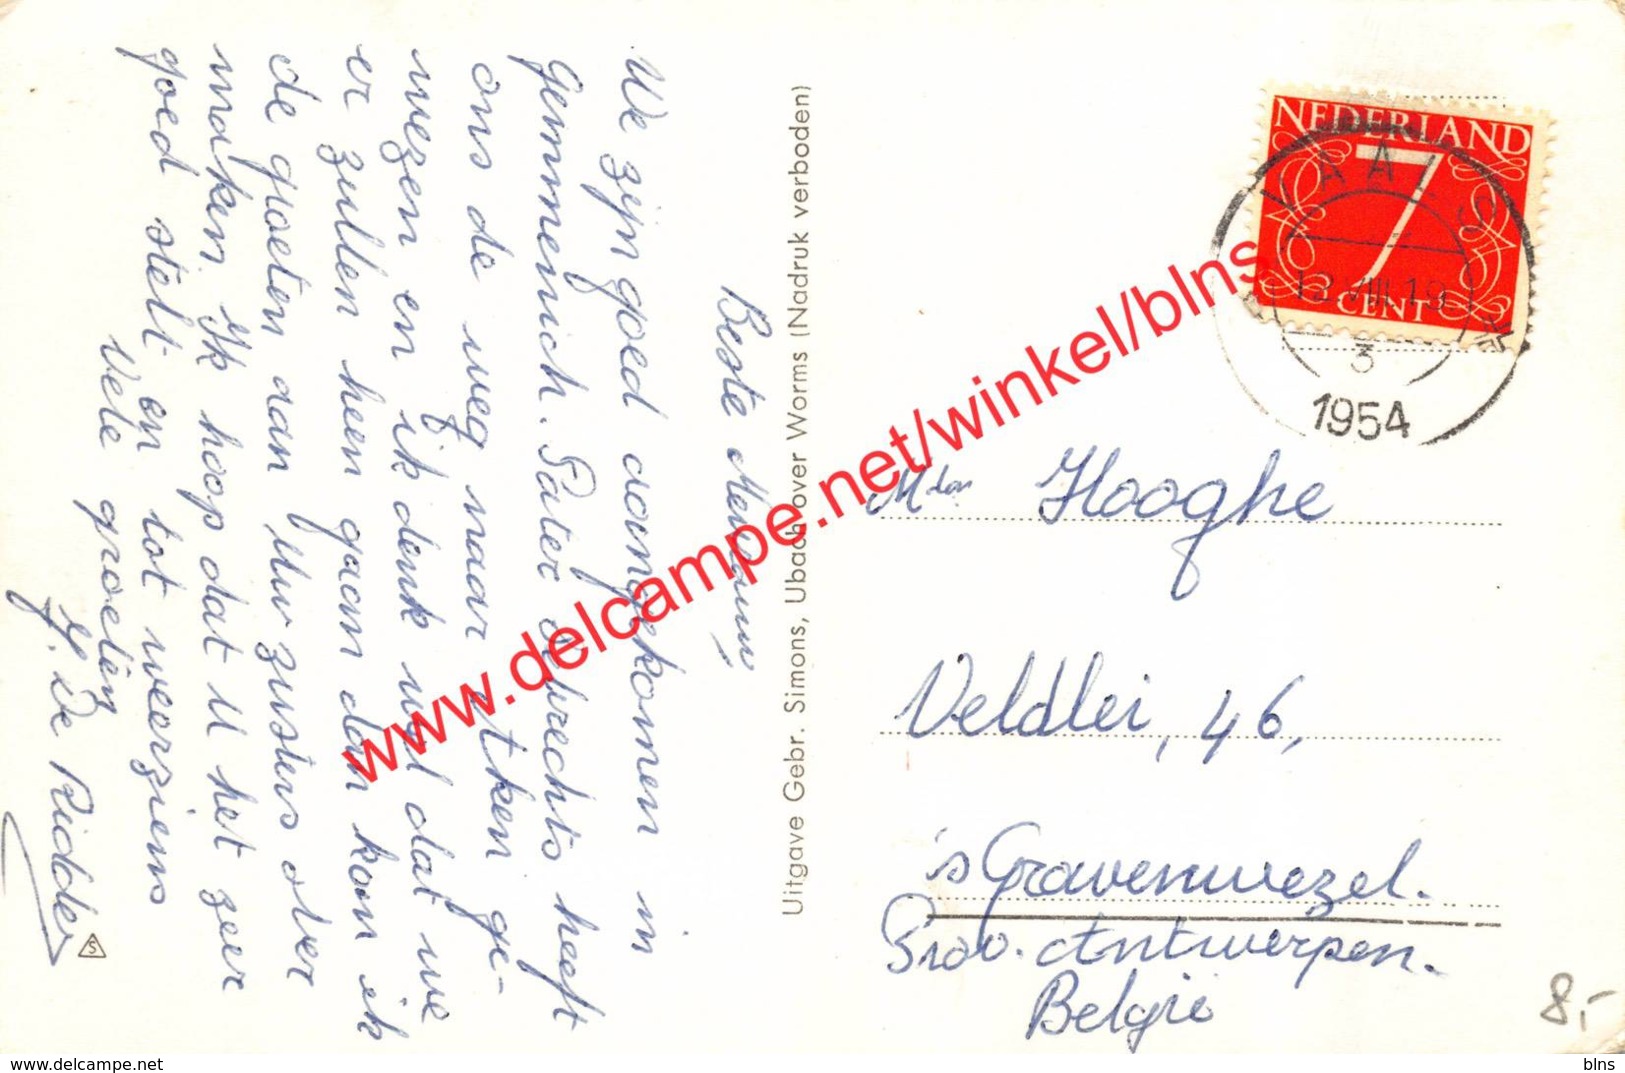 Beste Mevrouw,
We zijn goed aangekomen in
Gemmenich. Pater Aelbrechts heeft
ons de weg naar Uken ge-
wezen en ik denk wel dat we
er zullen heen gaan dan kan ik
de groeten aan Uw zusters over
maken. Ik hoop dat U het zeer
goed stelt en tot weerziens
Vele groeten
De Ridder
S
Uitgave Gebr. Simons, Ubach over Worms (Nadruk verboden)
NEDERLAND
7
CENT
VAALS
12.VIII.19
3
1954
Hooghe
Veldlei, 46,
'sGravenwezel.
Prov. Antwerpen.
België
8,-
www.delcampe.net/winkel/blns
www.delcampe.net
blns